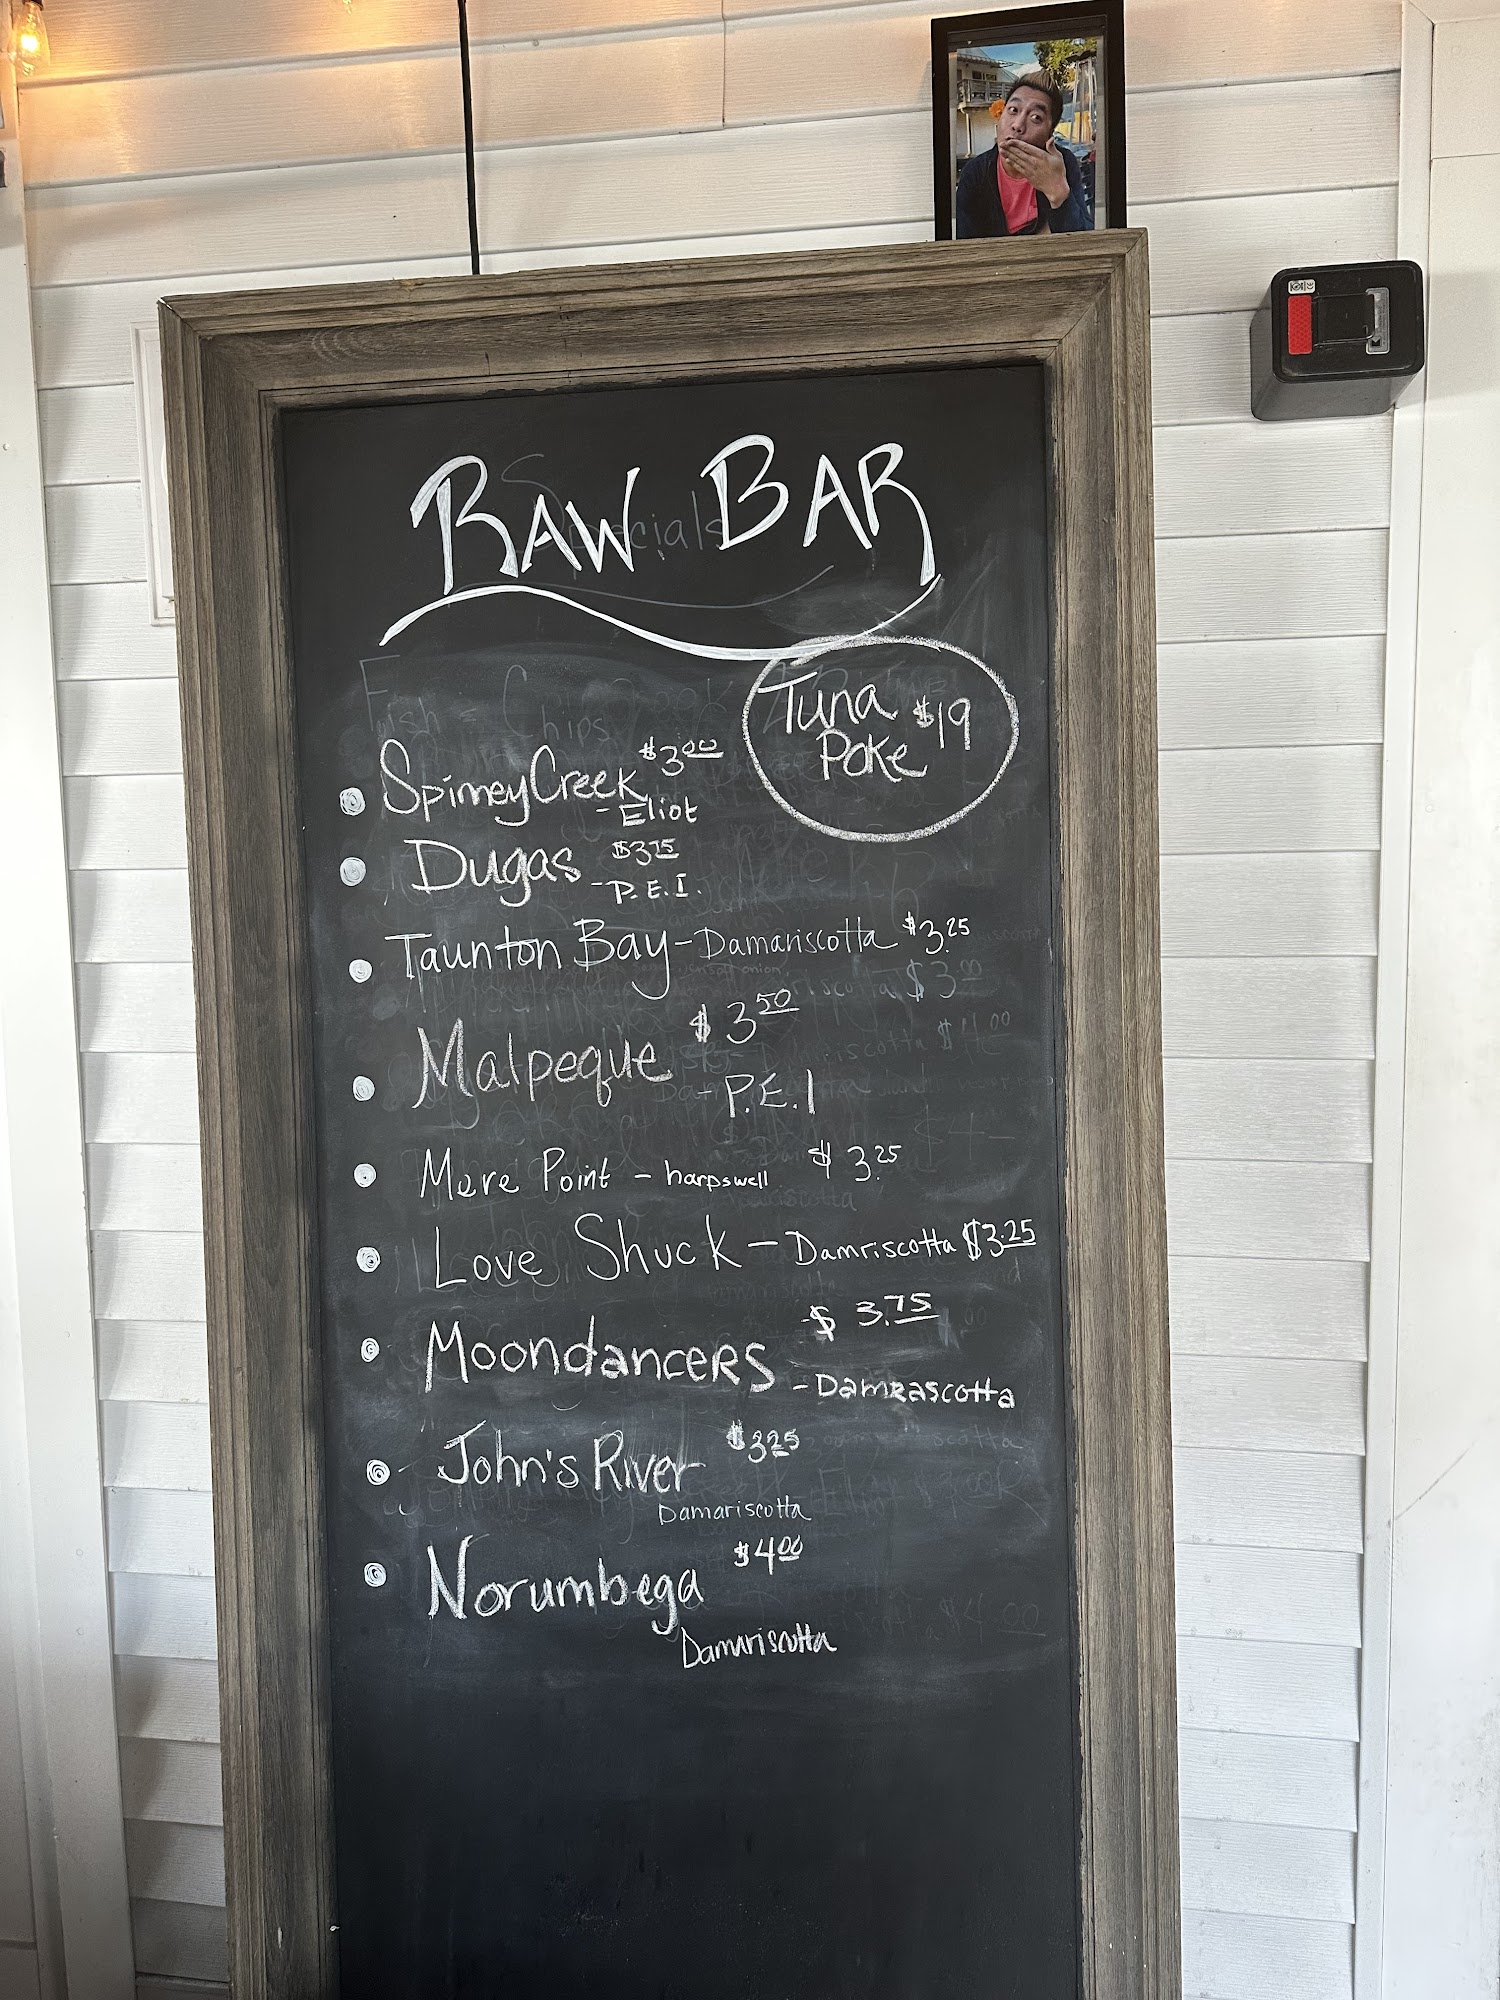 RAW BAR
Specials
Fish = Chips
Tuna $19
Poke
Spinney Creek $3.00
- Eliot
Dugas $3.75
- P.E.I.
Taunton Bay - Damariscotta $3.25
Malpeque $3.50
- P.E.I
Mere Point - harpswell $3.25
Love Shuck - Damriscotta $3.25
Moondancers - $3.75
- Damrascotta
John's River $3.25
Damariscotta
Norumbega $4.00
Damariscotta